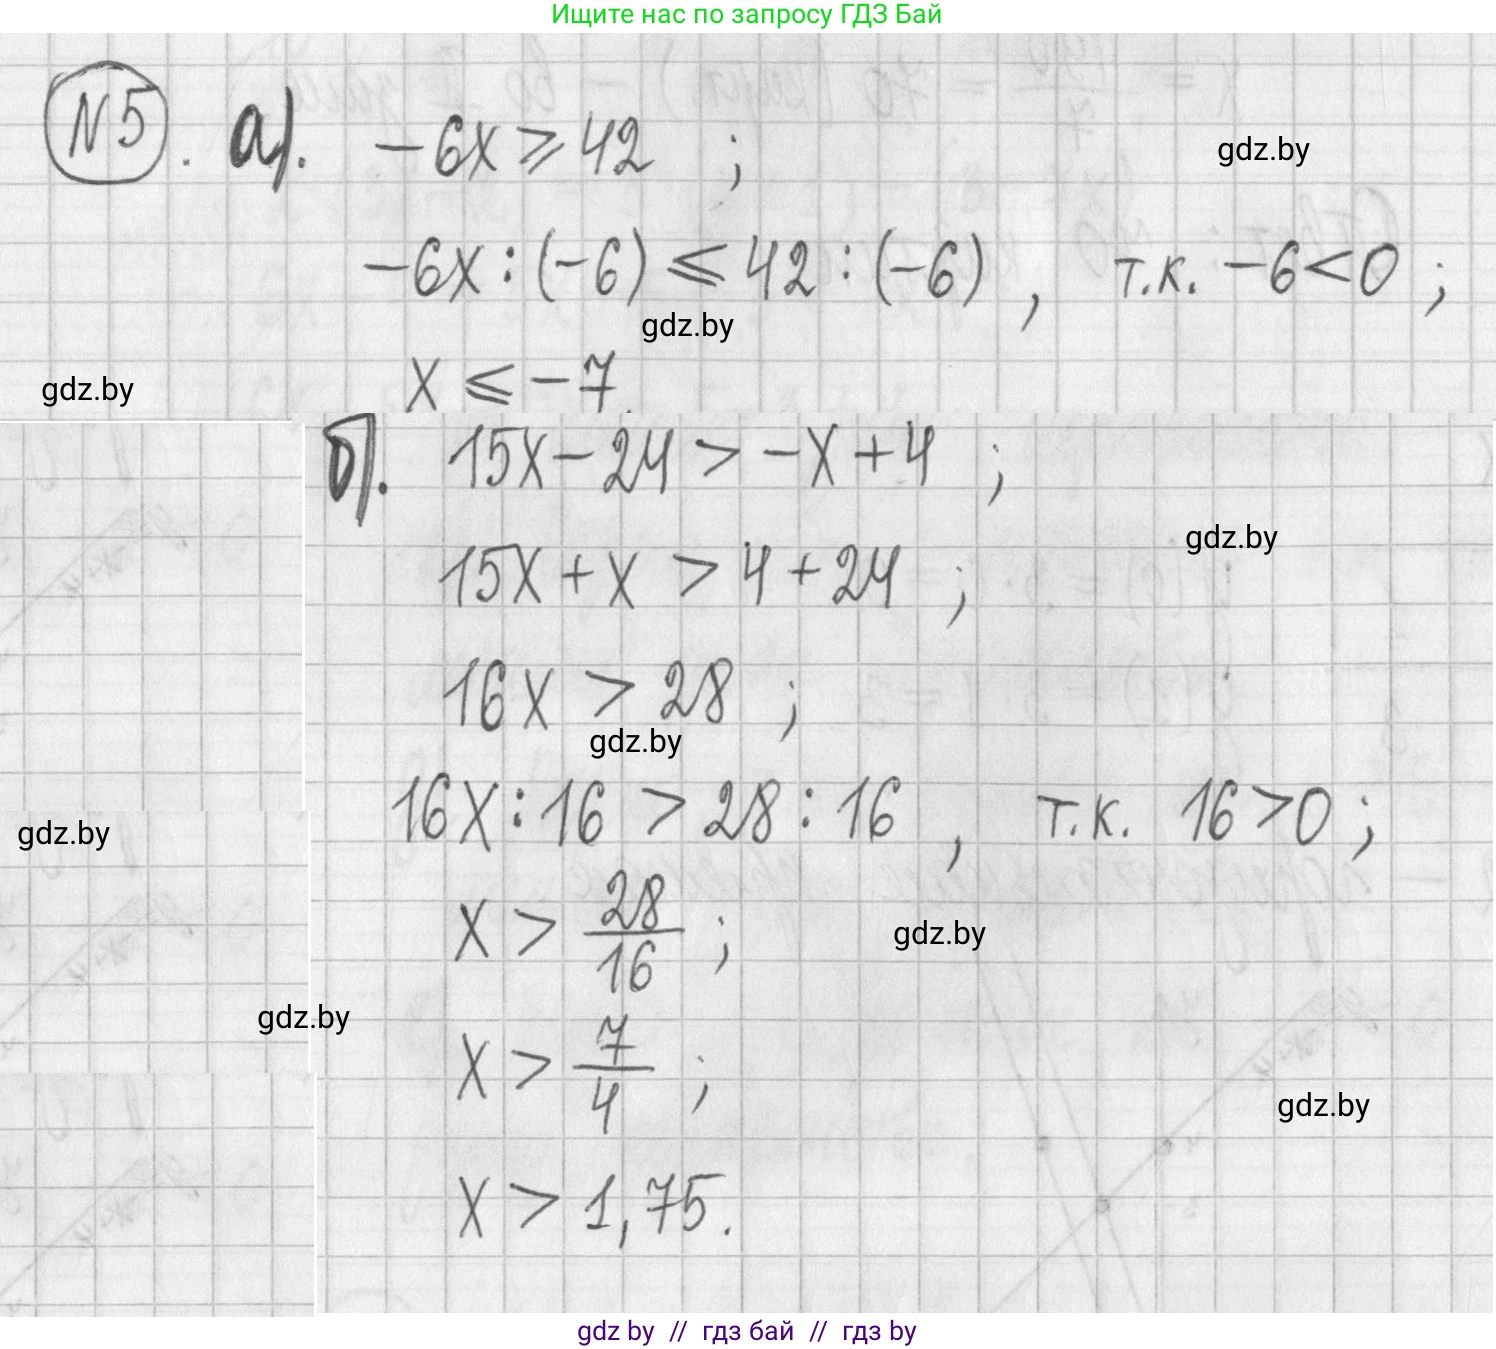 Ищите нас по запросу ГДЗ Бай
N5. а). -6x ⩾ 42 ;
gdz.by
-6x : (-6) ⩽ 42 : (-6) , т.к. -6 < 0 ;
gdz.by
x ⩽ -7.
gdz.by
б). 15x - 24 > -x + 4 ;
gdz.by
15x + x > 4 + 24 ;
16x > 28 ;
gdz.by
16x : 16 > 28 : 16 , т.к. 16 > 0 ;
gdz.by
x > 28/16 ;
gdz.by
gdz.by
x > 7/4 ;
gdz.by
x > 1,75.
gdz by // гдз бай // гдз by